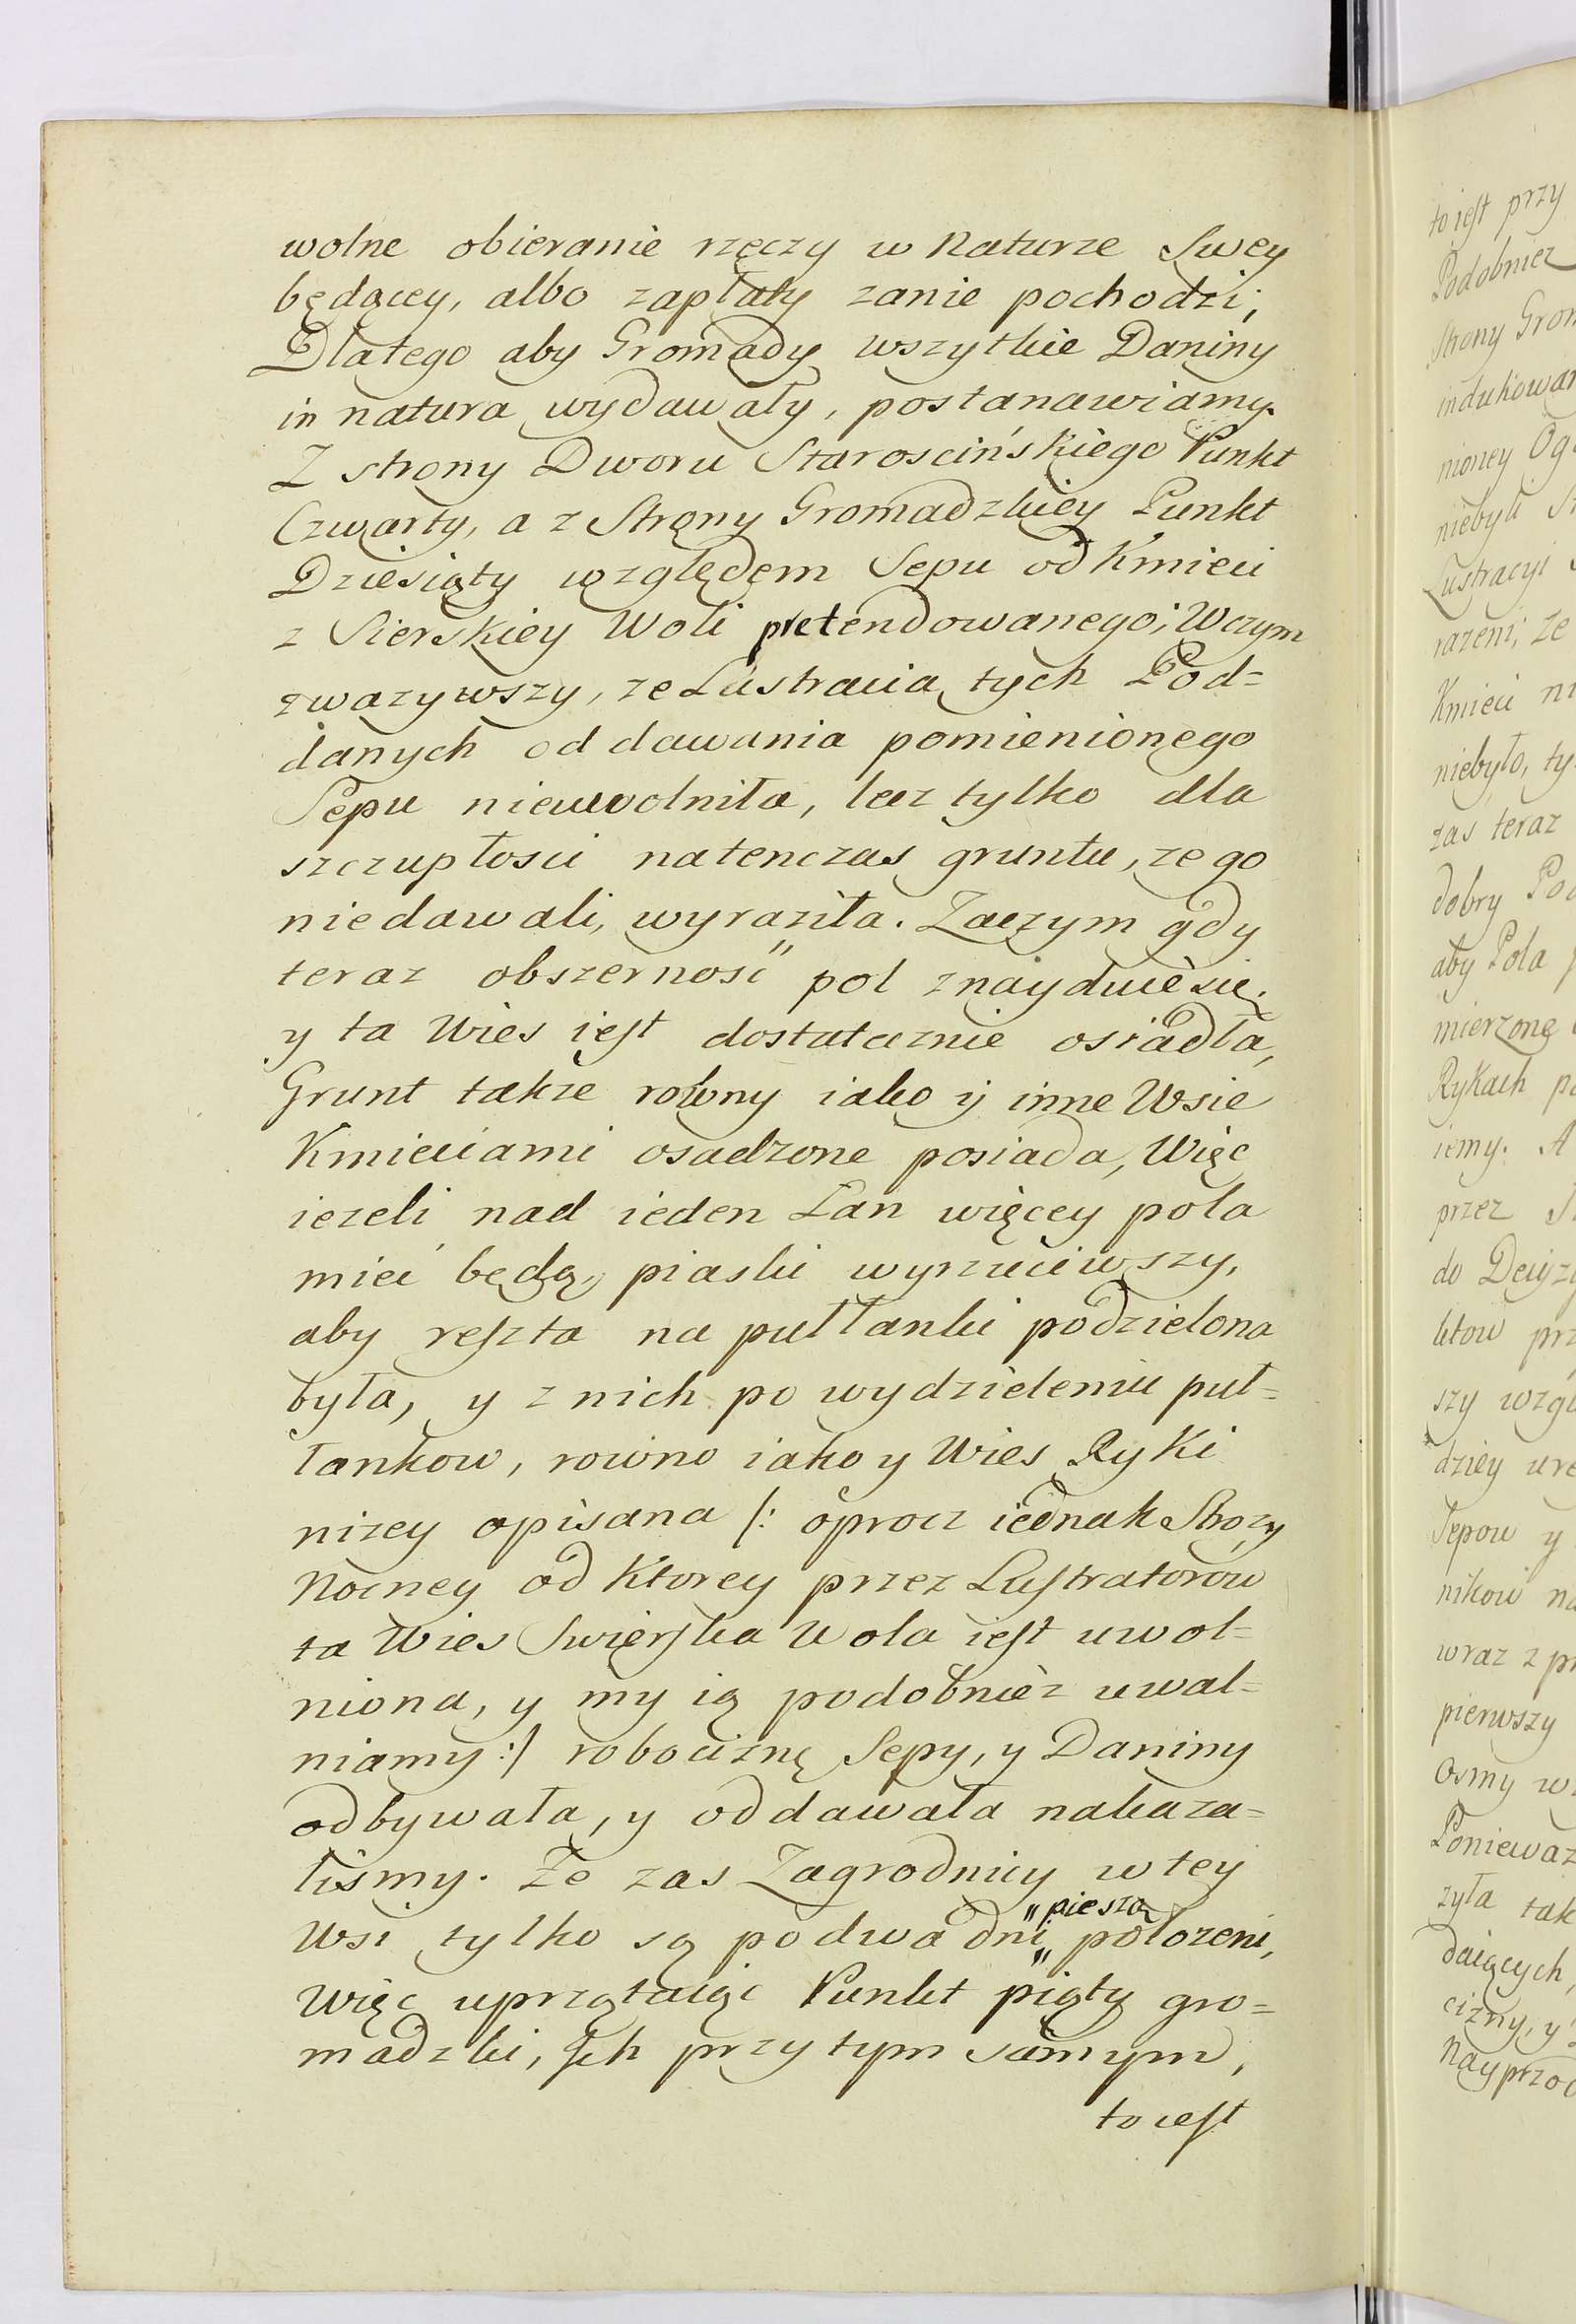 wolne obieranie rzęczy w Naturze Swey
będącey, albo zapłaty zanie pochodzi;
Dlatego aby Gromady wszytkie Daniny
in natura wydawały, postanawiamy.
Z strony Dworu Starościńskiego Punkt
Czwarty, a z Strony Gromadzkiey Punkt
Dziesiąty względem Sepu od Kmieci
z Sierskiey Woli pretendowanego; Wczym
zwazywszy, ze Lustracia tych Pod=
danych od dawania pomienionego
Sepu nieuwolniła, lecz tylko dla
szczupłosci natenczas gruntu, ze go
niedawali, wyraziła. Zaczym gdy
teraz obszernosć pol znayduie się.
y ta Wies iest dostatecznie osiadła,
Grunt takze rowny iako ij inne Wsie
Kmieciami osadzone posiada, Więc
iezeli nad ieden Łan więcey pola
mieć będą, piaski wyrzuciwszy,
aby reszta na pułłanki podzielona
była, y z nich po wydzieleniu puł=
łankow, rowno iako y Wies Ryki
nizey opisana /: oprocz iednak Strozy
Nocney od Ktorey przez Lustratorow
ta Wies Swierska Wola iest uwol=
niona, y my ią podobniez uwal=
niamy :/ robociznę Sepy, y Daniny
odbywała, y oddawała nakaza=
lismy. Ze zas Zagrodnicy w tey
Wsi tylko są po dwa dni "pieszo" połozeni,
Więc uprzątaiąc Punkt piąty gro=
madzki, Ich przy tym samym,
to iest
to iest przy
Podobniez
Strony Grom
indukowan
nioney Og
niebyli S
Lustracyi
razeni; ze
Kmieci ni
niebyło, ty
zas teraz
dobry Pod
aby Pola
mierzone
Rykach po
iemy. A
przez
do Decyz
ktow prz
szy wzgl
dziey
Sepow y
nikow na
wraz z pr
pierwszy
Osmy w
Poniewaz
zyła tak
daiących,
cizny, y
Nayprzod